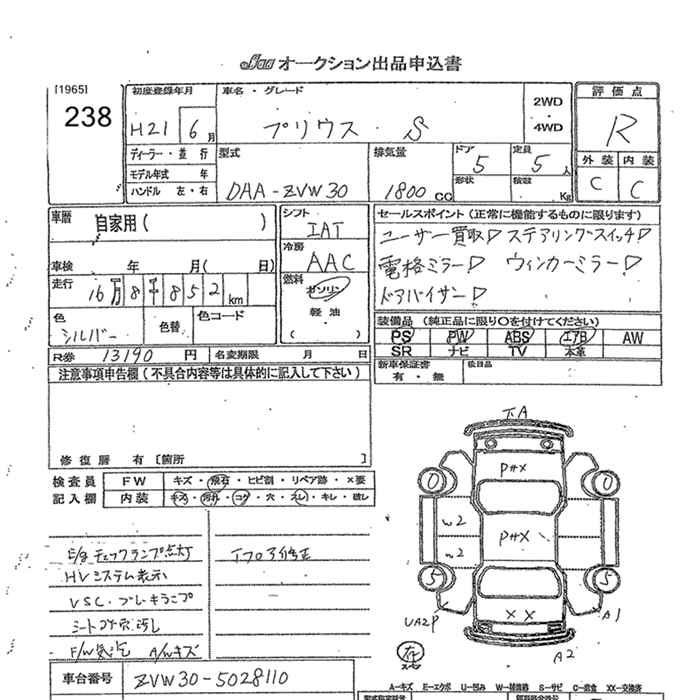 Jaa オークション出品申込書
[1965]
238
初度登録年月 H21 6月
車名・グレード プリウス S
2WD
4WD
評価点 R
ディーラー・並行
モデル年式 年
ハンドル 左・右
型式 DAA-ZVW30
排気量 1800 CC
ドア 5
形状
定員 5人
積載 Kg
外装 内装
C C
車歴 自家用( )
シフト IAT
セールスポイント(正常に機能するものに限ります)
ユーザー買取 ステアリングスイッチ
冷房 AAC
電格ミラー ウィンカーミラー
車検 年 月( 日)
走行 16万8千852km
燃料 ガソリン
軽油
( )
ドアバイザー
色 シルバー
色替
色コード
装備品(純正品に限り○を付けてください)
PS PW ABS エアB AW
SR ナビ TV 本革
R券 13190円
名変期限 月 日
新車保証書
有・無
注意事項申告欄(不具合内容等は具体的に記入して下さい)
修復歴 有[箇所 ]
検査員 FW キズ・飛石・ヒビ割・リペア跡・×要
記入欄 内装 キズ・汚れ・コゲ・穴・スレ・キレ・破レ
E/gチェックランプ点灯
HVシステム表示
VSC・ブレーキランプ
F/W飛石 A/Wキズ
車台番号 ZVW30-5028110
下A
P#X
0 0
W2
P#X
W2
5 5
XX
UA2P
A1
A2
A=キズ E=エクボ U=凹み W=補修跡 S=サビ C=腐食 XX=交換済